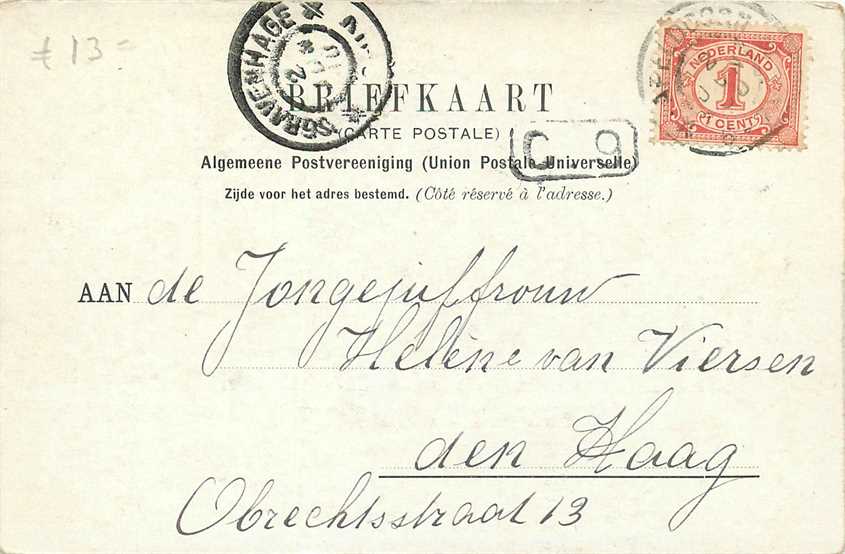 € 13=
'SGRAVENHAGE
NEDERLAND
1
1 CENT
BRIEFKAART
(CARTE POSTALE)
C 9
Algemeene Postvereeniging (Union Postale Universelle)
Zijde voor het adres bestemd. (Côté réservé à l'adresse.)
AAN de Jongejuffrouw
Helène van Viersen
den Haag
Obrechtsstraat 13